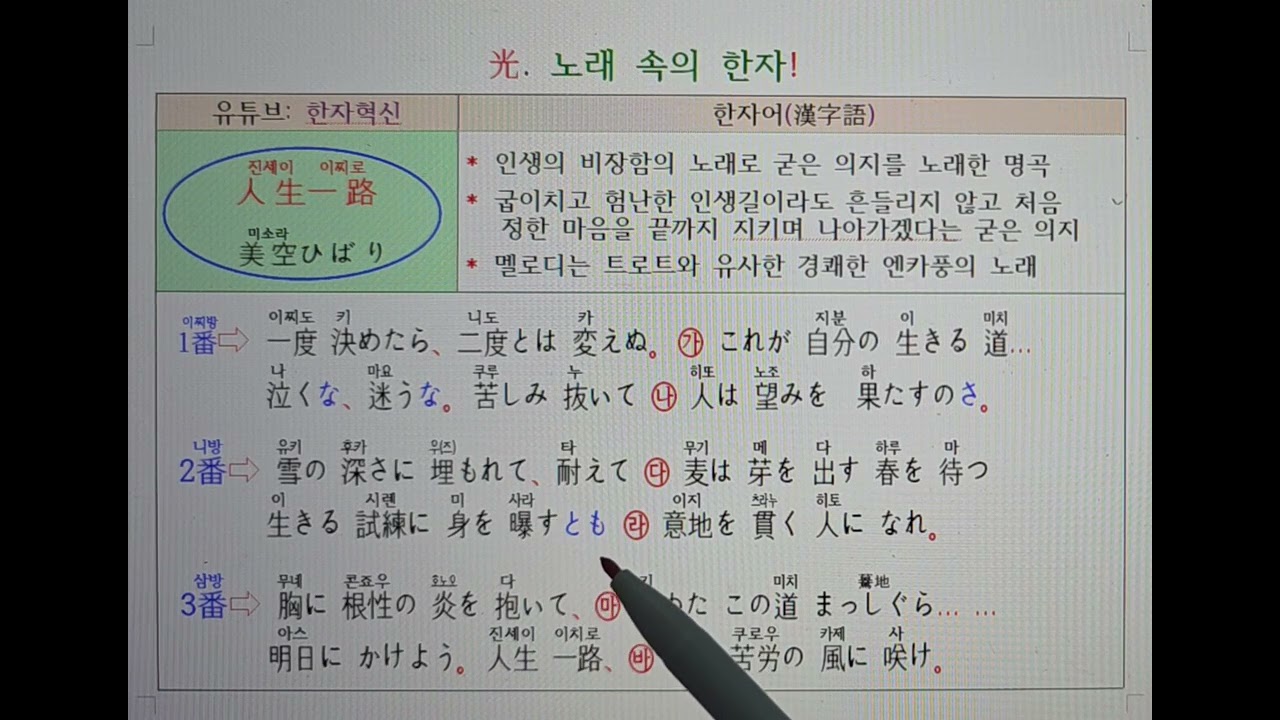 光. 노래 속의 한자!
유튜브: 한자혁신
한자어(漢字語)
진세이 이찌로
人生一路
미소라
美空ひばり
* 인생의 비장함의 노래로 굳은 의지를 노래한 명곡
* 굽이치고 험난한 인생길이라도 흔들리지 않고 처음
정한 마음을 끝까지 지키며 나아가겠다는 굳은 의지
* 멜로디는 트로트와 유사한 경쾌한 엔카풍의 노래
이찌방 이찌도 키 니도 카 지분 이 미치
1番⇨ 一度 決めたら、二度とは 変えぬ。 ㉮ これが 自分の 生きる 道…
나 마요 쿠루 누 히또 노조 하
泣くな、迷うな。 苦しみ 抜いて ㉯ 人は 望みを 果たすのさ。
니방 유키 후카 우(즈) 타 무기 메 다 하루 마
2番⇨ 雪の 深さに 埋もれて、耐えて ㉰ 麦は 芽を 出す 春を 待つ
이 시렌 미 사라 이지 츠라누 히토
生きる 試練に 身を 曝すとも ㉱ 意地を 貫く 人に なれ。
삼방 무네 콘죠우 호노오 다 미치
3番⇨ 胸に 根性の 炎を 抱いて、㉲ た この道 まっしぐら… …
아스 진세이 이치로 쿠로우 카제 사
明日に かけよう。 人生 一路、㉳ 苦労の 風に 咲け。